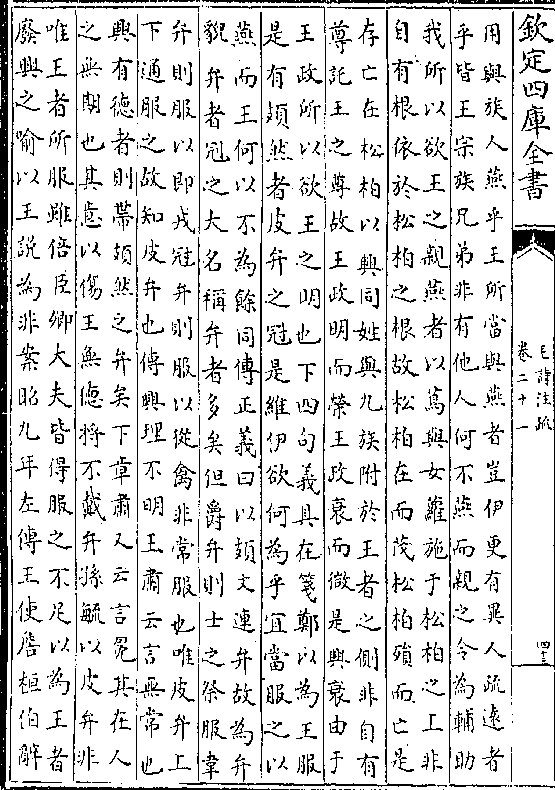 欽定四庫全書
毛詩注疏
卷二十一
用與族人燕乎王所當與燕者豈伊更有異人疏遠者
乎皆王宗族兄弟非有他人何不燕而親之令為輔助
我所以欲王之親燕者以蔦與女蘿施于松柏之上非
自有根依於松柏之根故松柏在而茂松柏殞而亡是
存亡在松柏以興同姓與九族附於王者之側非自有
尊託王之尊故王政明而榮王政衰而微是興衰由于
王政所以欲王之明也下四句義具在箋鄭以為王服
是有頍然者皮弁之冠是維伊欲何為乎宜當服之以
燕而王何以不為餘同傳正義曰以頍文連弁故為弁
貌弁者冠之大名稱弁者多矣但爵弁則士之祭服韋
弁則服以即戎冠弁則服以從禽非常服也唯皮弁上
下通服之故知皮弁也傳興理不明王肅云言無常也
興有德者則帶頍然之弁矣下章肅又云言冕其在人
之無期也其意以傷王無德將不戴弁孫毓以皮弁非
唯王者所服雖倍臣卿大夫皆得服之不足以為王者
廢興之喻以王說為非案昭九年左傳王使詹桓伯辭